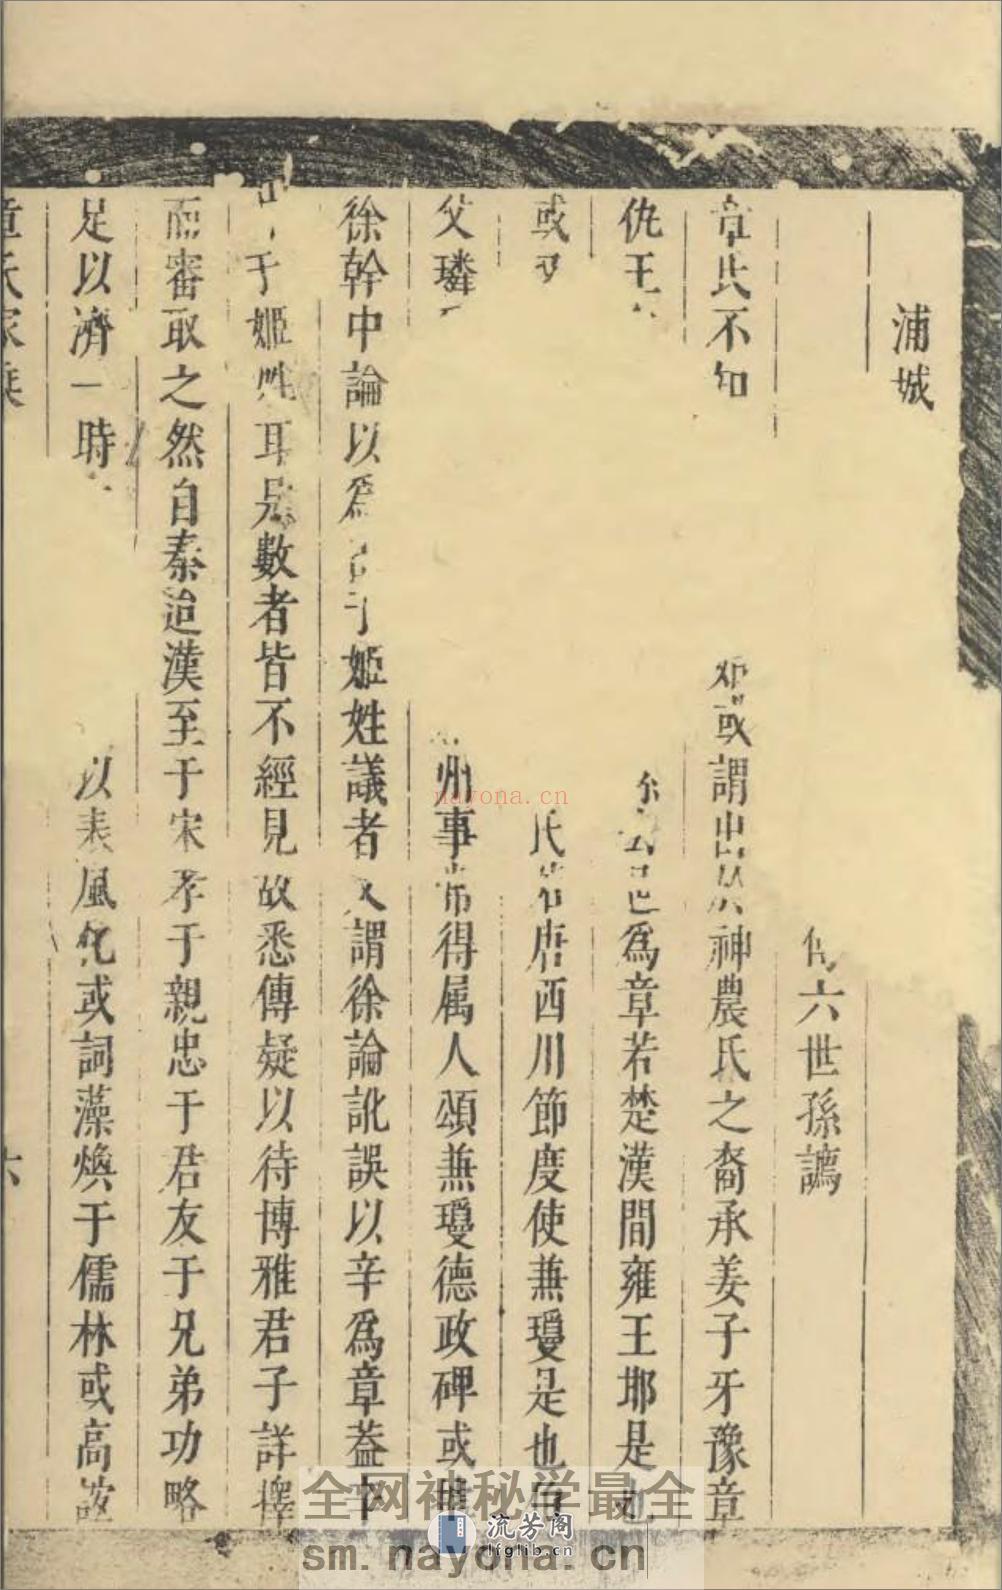 浦城
六世孫譸
章氏不知
或謂出於神農氏之裔承姜子牙豫章
仇王
爲章若楚漢間雍王邯是也
或
氏若唐西川節度使兼瓊是也
父璘
州事常得属人頌兼瓊德政碑或
徐幹中論以爲
于姬姓議者又謂徐論訛誤以辛爲章蓋
于姬姓耳是數者皆不經見故悉傳疑以待博雅君子詳擇
而審取之然自秦迨漢至于宋孝于親忠于君友于兄弟功略
足以濟一時
以表風化或詞藻煥于儒林或高
章氏家乘
六
nayona.cn
全网神秘学最全
sm.nayona.cn
流芳阁
lfglib.cn